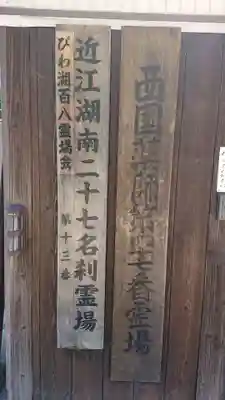 西国薬師第四十七番霊場
近江湖南二十七名刹霊場
びわ湖百八霊場会 第十三番